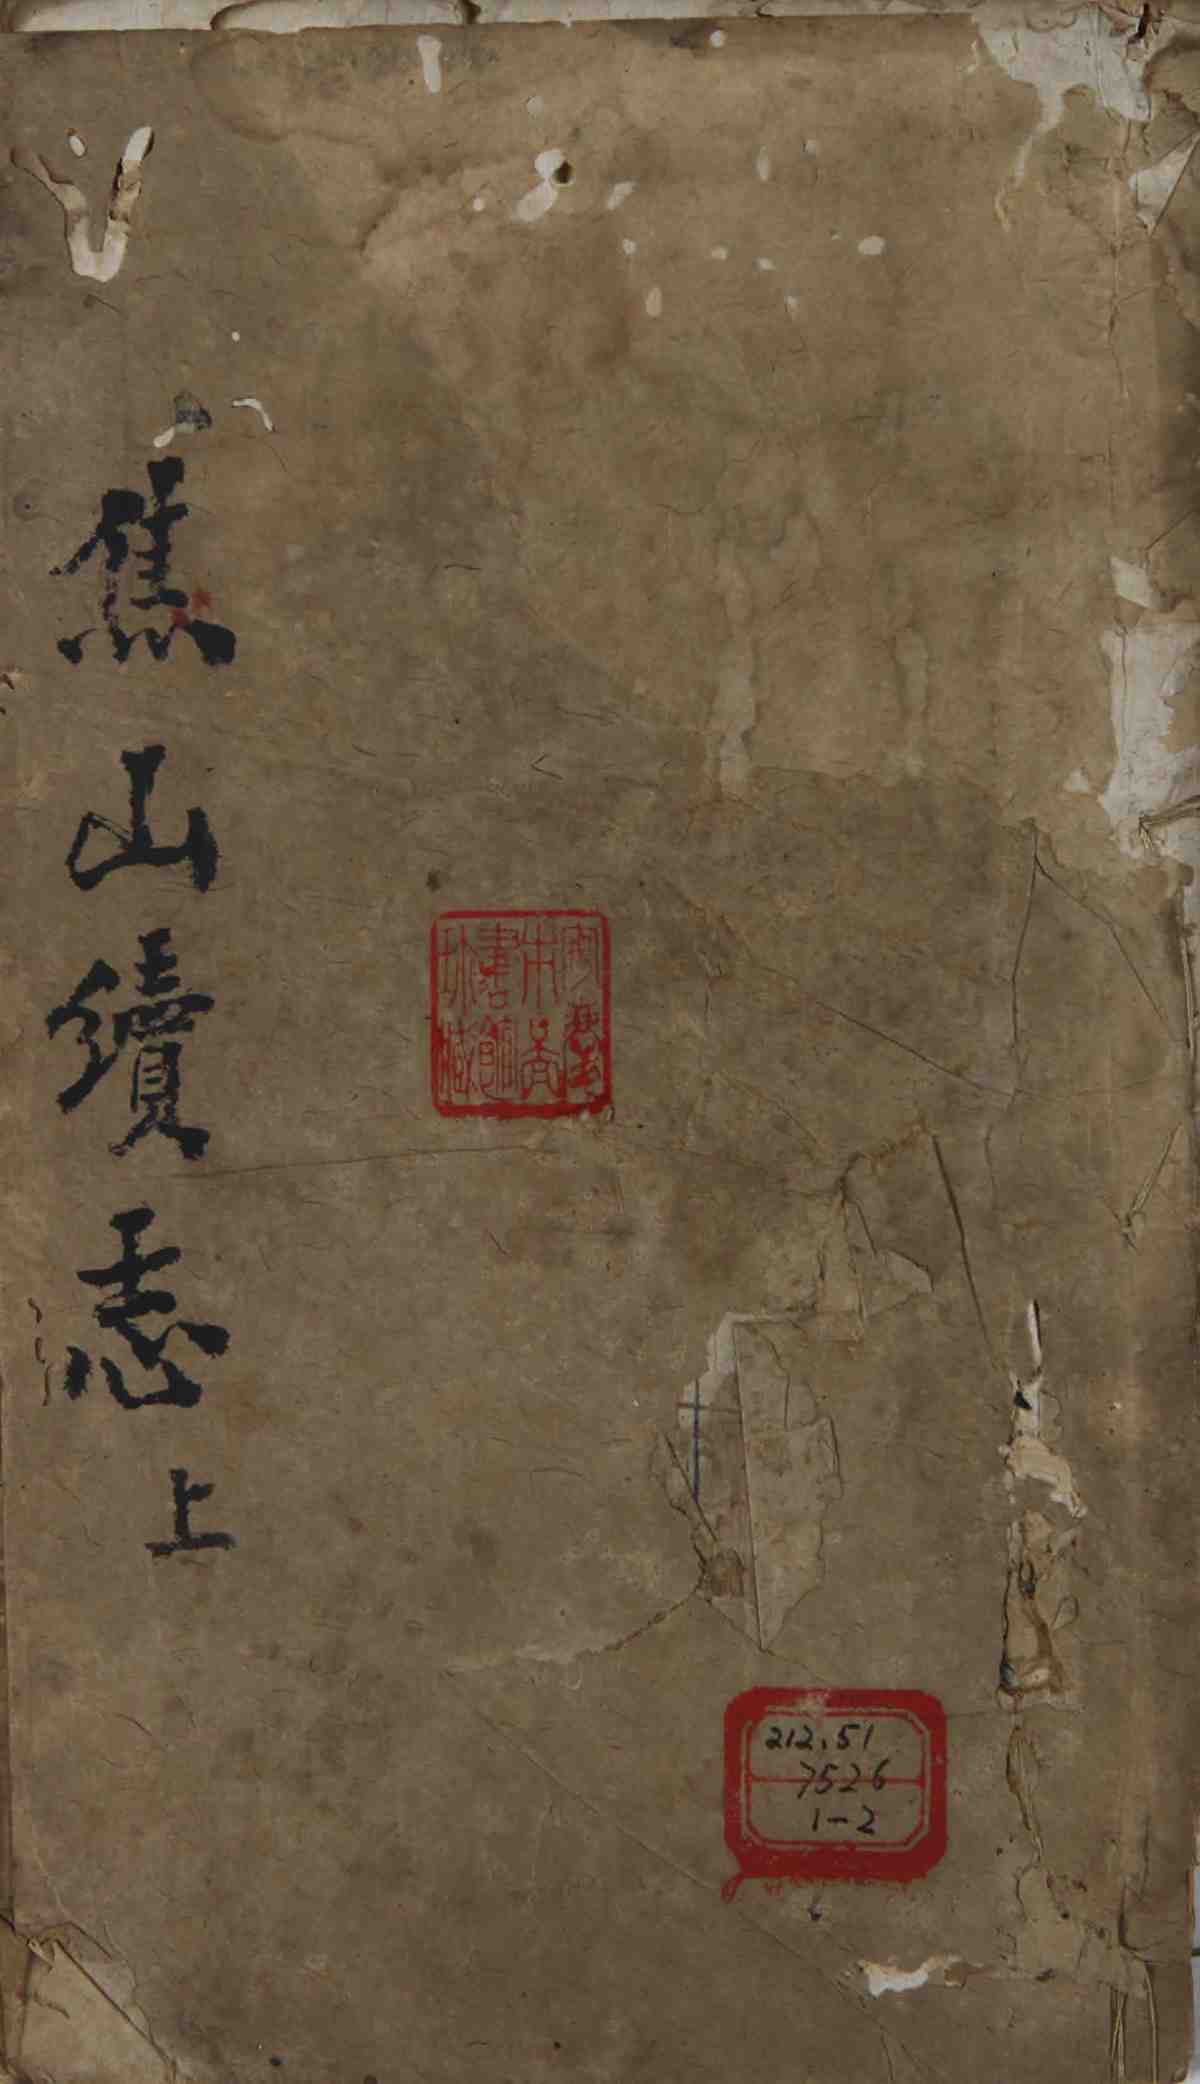 焦山續志上
書館
珍藏
212.51
7526
1-2